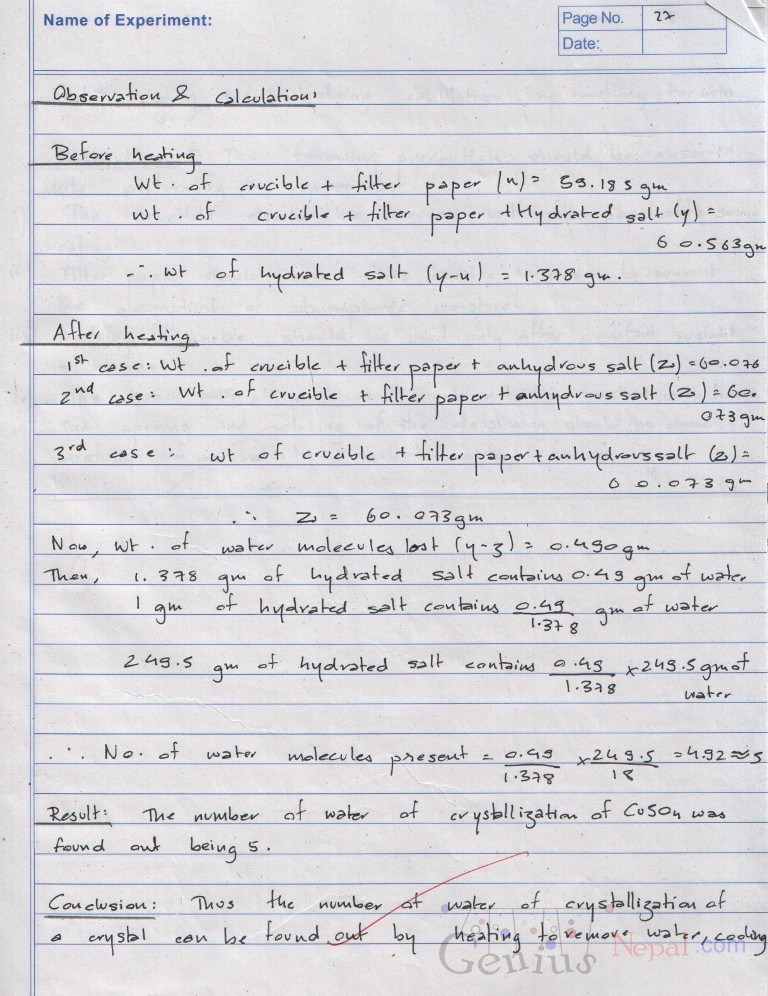 Name of Experiment:
Page No. 27
Date:
Observation & Calculation:
Before heating
Wt. of crucible + filter paper (x) = 59.185 gm
Wt. of crucible + filter paper + Hydrated salt (y) =
60.563gm
∴ wt of hydrated salt (y-x) = 1.378 gm.
After heating
1st case: Wt. of crucible + filter paper + anhydrous salt (z) = 60.076
2nd case: Wt. of crucible + filter paper + anhydrous salt (z) = 60.
073gm
3rd case: wt of crucible + filter paper + anhydrous salt (z) =
60.073 gm
∴ Z = 60.073gm
Now, wt. of water molecules lost (y-z) = 0.490gm
Then, 1.378 gm of hydrated salt contains 0.49 gm of water
1 gm of hydrated salt contains 0.49/1.378 gm of water
249.5 gm of hydrated salt contains 0.49/1.378 × 249.5gm of
water
∴ No. of water molecules present = 0.49/1.378 × 249.5/18 = 4.92 ≈ 5
Result: The number of water of crystallization of CuSO4 was
found out being 5.
Conclusion: Thus the number of water of crystallization of
a crystal can be found out by heating to remove water, cooling
Genius Nepal.com